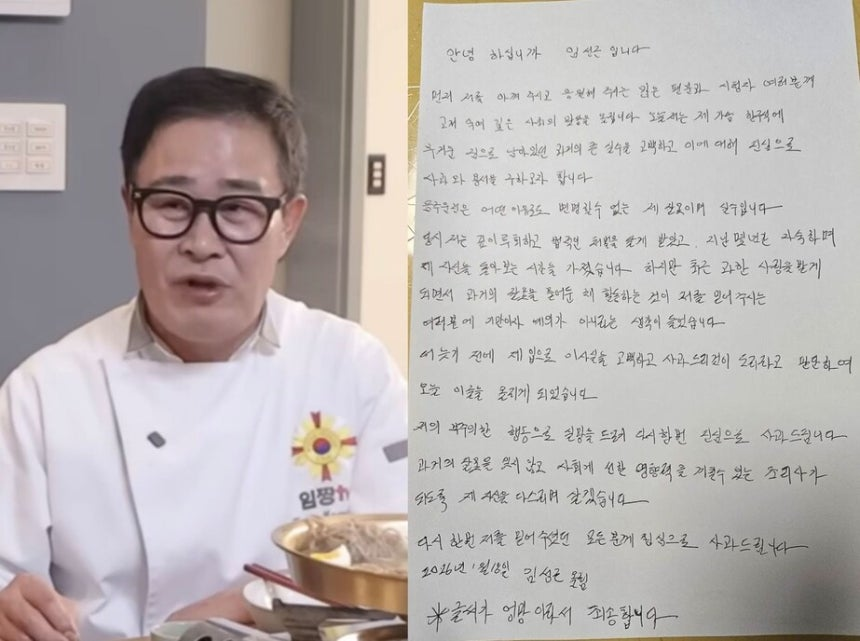 임짱
안녕 하십니까 임성근 입니다
먼저 저를 아껴 주시고 응원해 주시는 많은 팬분과 시청자 여러분께
고개 숙여 깊은 사죄의 말씀을 드립니다 오늘 저는 제 가슴 한구석에
무거운 짐으로 남아있던 과거의 큰 실수를 고백하고 이에 대해 진심으로
사과와 용서를 구하고자 합니다
음주운전은 어떤 이유로도 변명할수 없는 제 잘못이며 실수입니다
당시 저는 깊이 후회하고 법적인 처벌을 달게 받았고, 지난 몇년간 자숙하며
제 자신을 돌아보는 시간을 가졌습니다 하지만 최근 과한 사랑을 받게
되면서 과거의 잘못을 묻어둔 채 활동하는 것이 저를 믿어 주시는
여러분에 기만이자 예의가 아니라는 생각이 들었습니다
더 늦기 전에 제 입으로 이사실을 고백하고 사과드리는것이 도리라고 판단하여
오늘 이글을 올리게 되었습니다
저의 부주의한 행동으로 실망을 드려 다시한번 진심으로 사과드립니다
과거의 잘못을 잊지 않고 사회에 선한 영향력을 끼칠수 있는 조리사가
되도록 제 자신을 다스리며 살겠습니다
다시 한번 저를 믿어 주셨던 모든 분께 진심으로 사과드립니다
2026년 1월 임성근 올림
※글씨가 엉망 이라서 죄송합니다